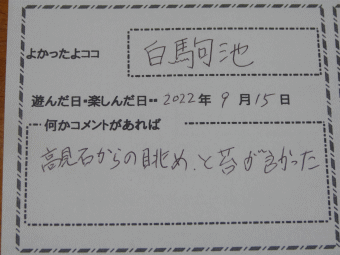 よかったよココ 白駒池
遊んだ日・楽しんだ日・・ 2022年 9月15日
何かコメントがあれば
高見石からの眺め、と苔が良かった